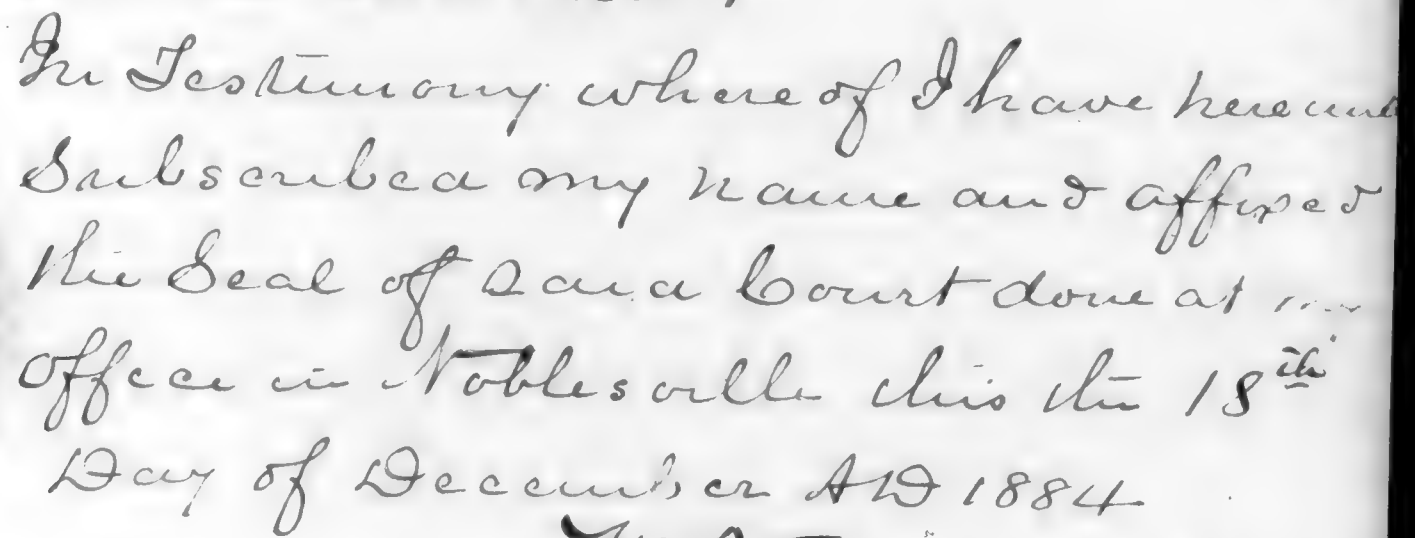 In Testimony where of I have hereunto
Subscribed my name and affixed
the Seal of Said Court done at my
office in Noblesville this the 18th
Day of December AD 1884